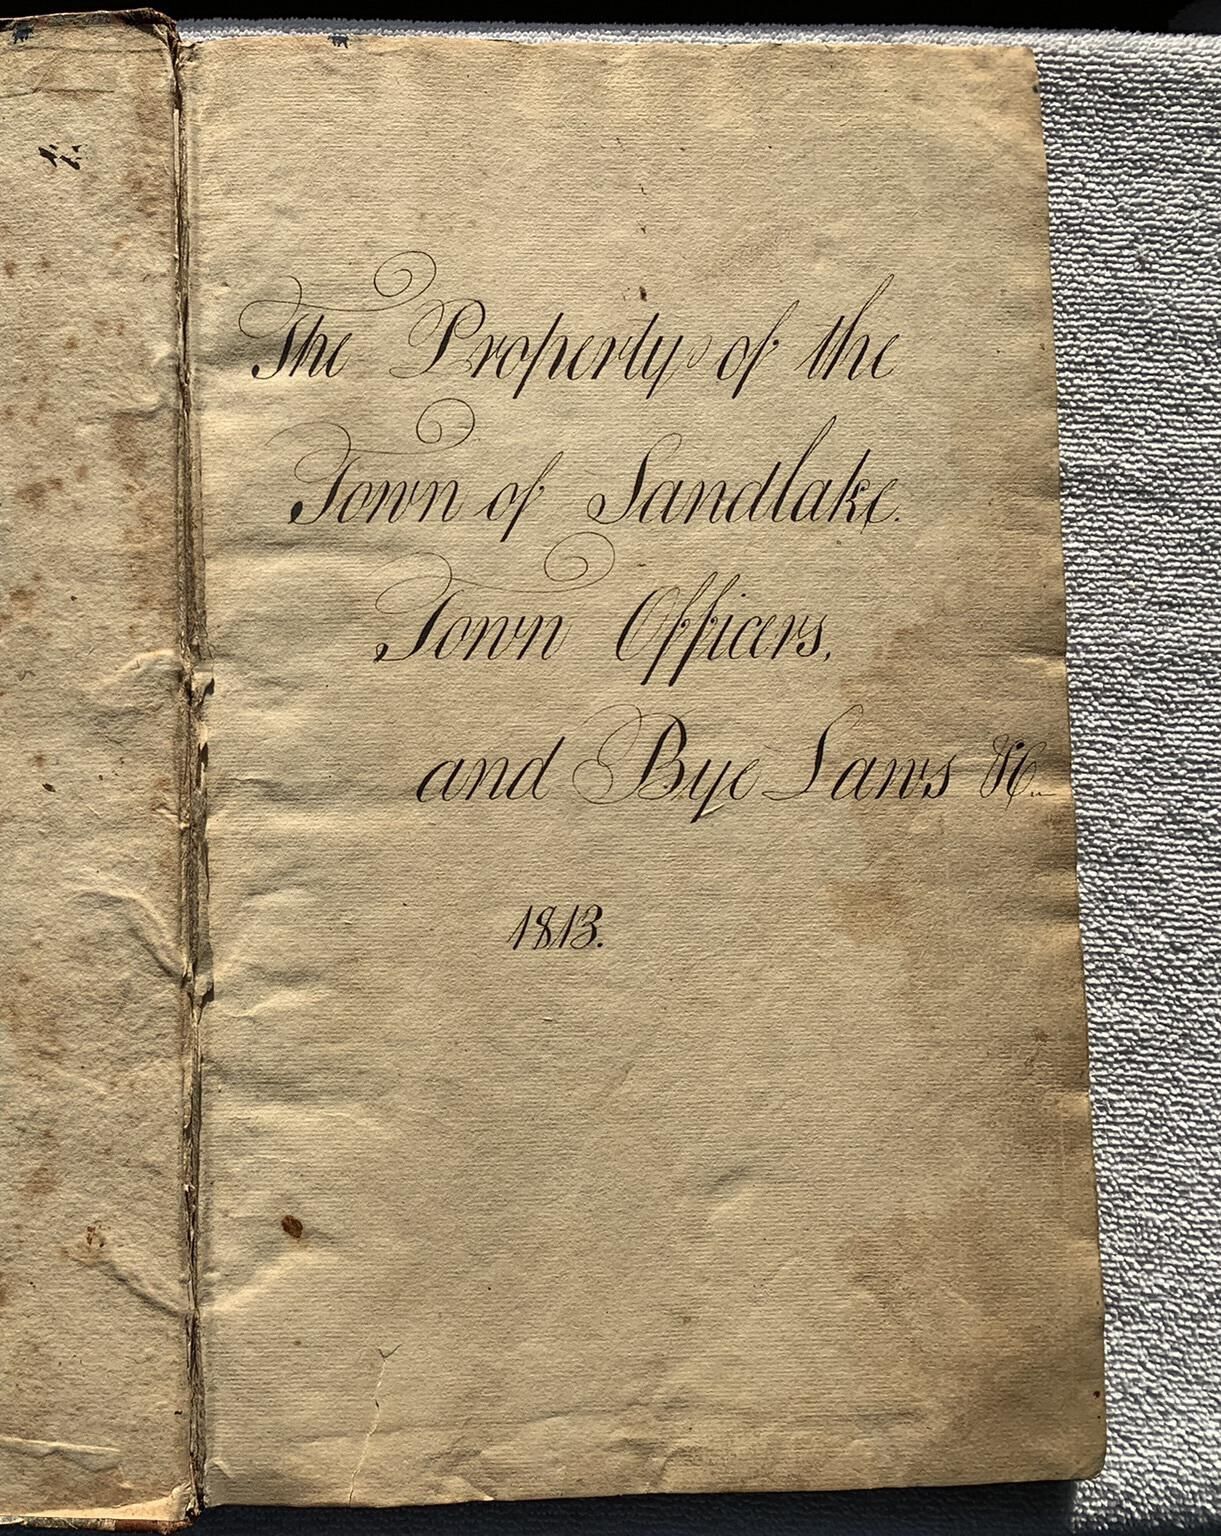 The Property of the
Town of Sandlake.
Town Officers,
and Bye Laws &C..
1813.